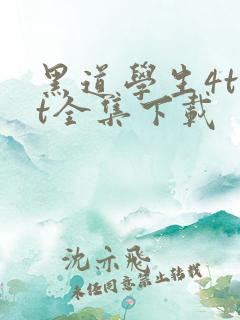 黑道學生4t
t全集下載
沈示飛
未经同意禁止转载